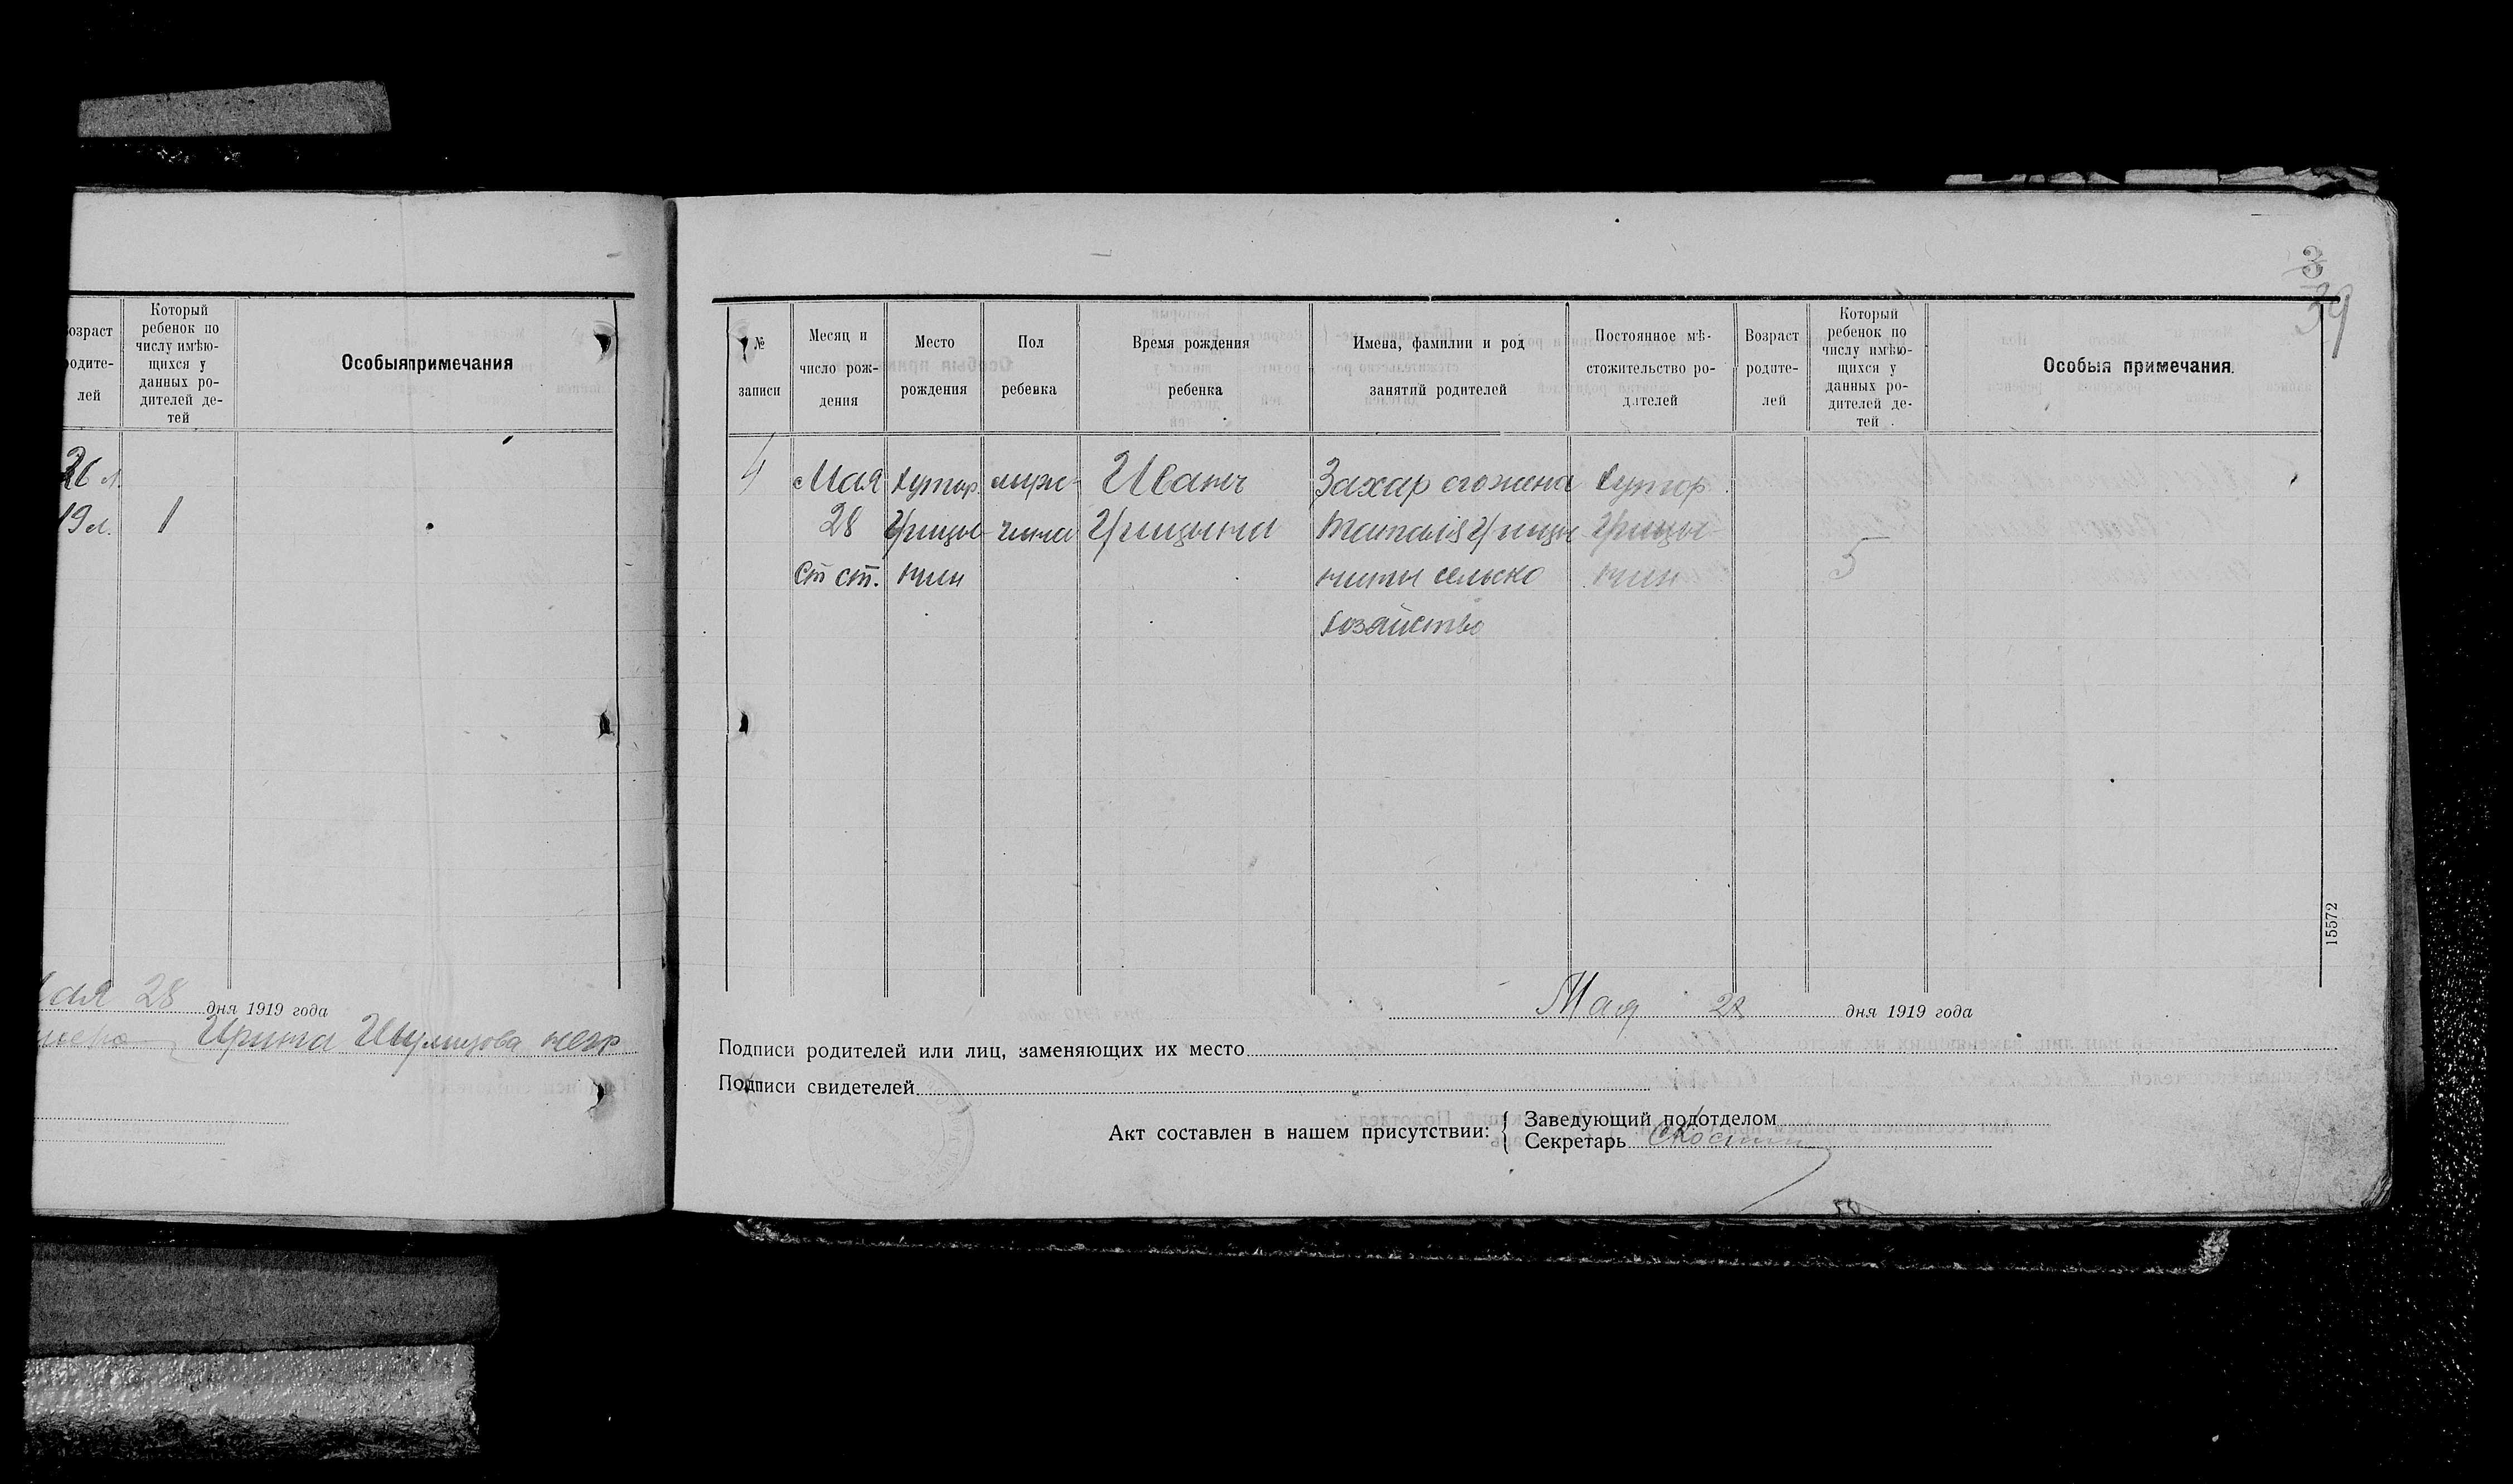 озраст родите- лей
Который ребенок по числу имѣю- щихся у данных ро- дителей де- тей
Особыяпримечания
26 л.
19 л. 1
28 дня 1919 года
Ирина
3
39
№ записи
Месяц и число рож- дения
Место рождения
Пол ребенка
Время рождения ребенка
Имена, фамилии и род занятий родителей
Постоянное мѣ- стожительство ро- дителей
Возраст родите- лей
Который ребенок по числу имѣю- щихся у данных ро- дителей де- тей
Особыя примечания.
4 Мая хутор муж- Иванъ Захар его жена хутор
28 Грицы- чина Грицына Грицы-
ст ст. нин сельско нин 5
хозяйство
15572
Мая 28 дня 1919 года
Подписи родителей или лиц, заменяющих их место
Подписи свидетелей
Акт составлен в нашем присутствии: Заведующий подотделом
Секретарь